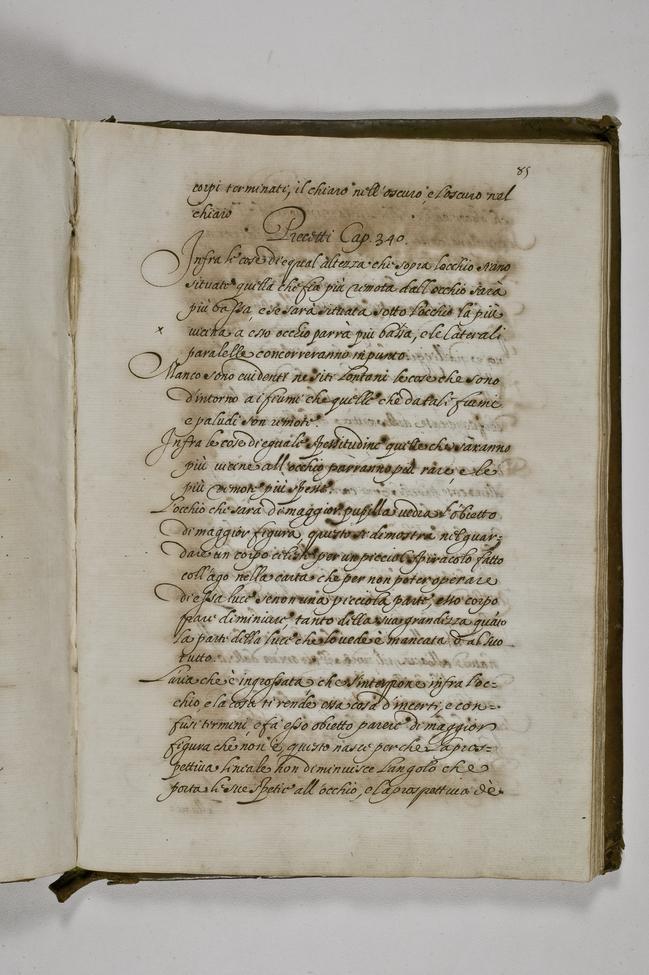 85
corpi terminati, il chiaro nell'oscuro, e l'oscuro nel
chiaro
Precetti Cap. 340.
Infra le cose di equal altenza che sopra l'occhio siano
situate quella che fia più remota dall'occhio sarà
più bassa, e se sarà situata sotto l'occhio la più
vicina a esso occhio parrà più bassa, e le laterali
paralelle concorreranno in punto.
Manco sono evidenti ne siti lontani le cose che sono
d'intorno a i fiumi che quelle che da tali fiumi
e paludi son remote.
Infra le cose di eguale spessitudine quelle che saranno
più vicine all'occhio parranno più rare, e le
più remote più spesse.
L'occhio che sarà di maggior pupilla vedrà l'obietto
di maggior figura, questo si dimostra nel guar=
dare un corpo celeste per un picciol spiracolo fatto
coll'ago nella carta che per non poter operare
di essa luce se non una picciola parte, esso corpo
pare diminuire, tanto della sua grandezza quāto
la parte della luce che lo vede è mancata dal suo
tutto.
L'aria che è ingrossata che s'interpone infra l'oc=
chio, e la cosa ti rende essa cosa d'incerti, e con=
fusi termini, e fa esso obietto parere di maggior
figura che non è, questo nasce perche la pros=
pettiva lineale non diminuisce l'angolo che
porta le sue spetie all'occhio, e la prospettiva de